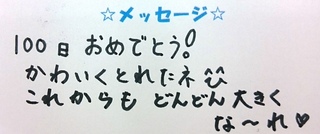 ☆メッセージ☆
100日 おめでとう!
かわいくとれたネ^^
これからも どんどん大きく
な〜れ♡